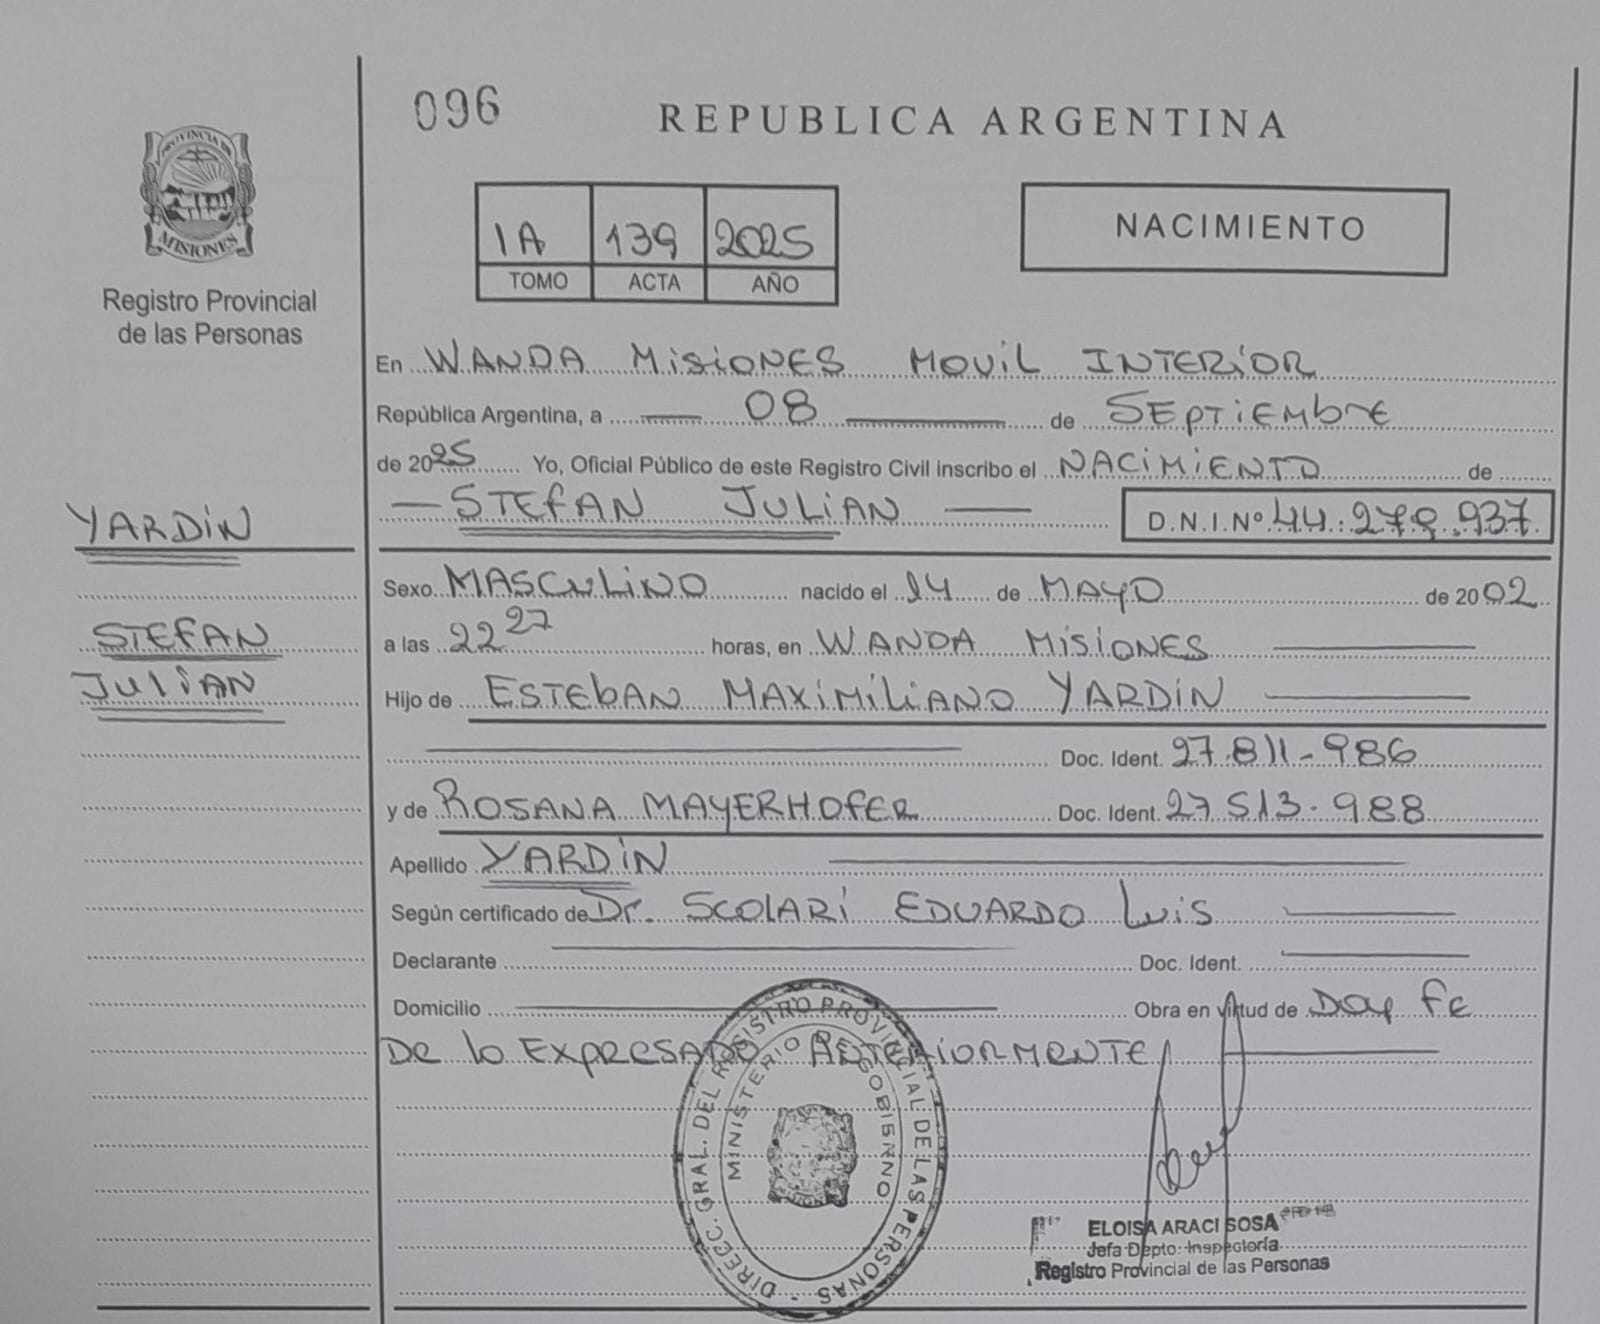 096
REPUBLICA ARGENTINA
PROVINCIA DE
MISIONES
Registro Provincial
de las Personas
1A 139 2025
TOMO ACTA AÑO
NACIMIENTO
En WANDA MISIONES MOVIL INTERIOR
República Argentina, a 08 de SEPTIEMbre
de 2025 Yo, Oficial Público de este Registro Civil inscribo el NACIMIENTO de
STEFAN JULIAN D.N.I.Nº 44.279.937
YARDIN
STEFAN
JULIAN
Sexo MASCULINO nacido el 14 de MAYO de 2002
a las 22 27 horas, en WANDA MISIONES
Hijo de ESTEbAN MAXIMILIANO YARDIN
Doc. Ident. 27.811-986
y de ROSANA MAYERHOFER Doc. Ident. 27 513.988
Apellido YARDIN
Según certificado de Dr. SCOLARI EDUARDO Luis
Declarante Doc. Ident.
Domicilio Obra en virtud de Doy FE
DE lo EXPRESADO ANTERIORMENTE
DIRECC. GRAL. DEL REGISTRO PROVINCIAL DE LAS PERSONAS -
MINISTERIO DE GOBIERNO
ELOISA ARACI SOSA
Jefa Depto. Inspectoría
Registro Provincial de las Personas